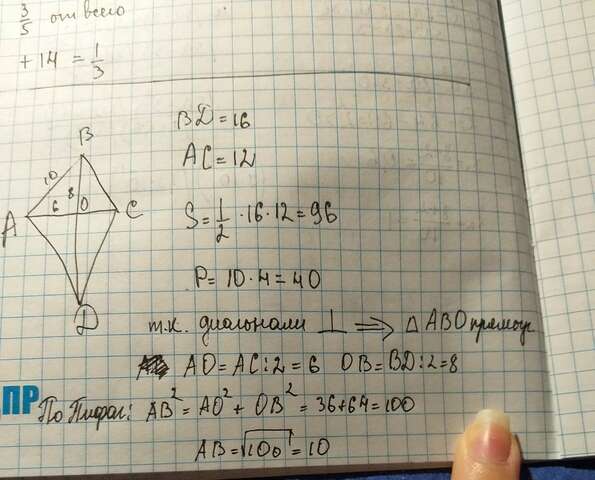 3/5 от всего
+ 14 = 1/3
B
10
8
6
O
A
C
D
BD = 16
AC = 12
S = 1/2 · 16 · 12 = 96
P = 10 · 4 = 40
т.к. диагонали ⊥ ⟹ △ ABO прямоуг
AO = AC : 2 = 6 OB = BD : 2 = 8
ПР
По Пифаг: AB² = AO² + OB² = 36 + 64 = 100
AB = √100 = 10